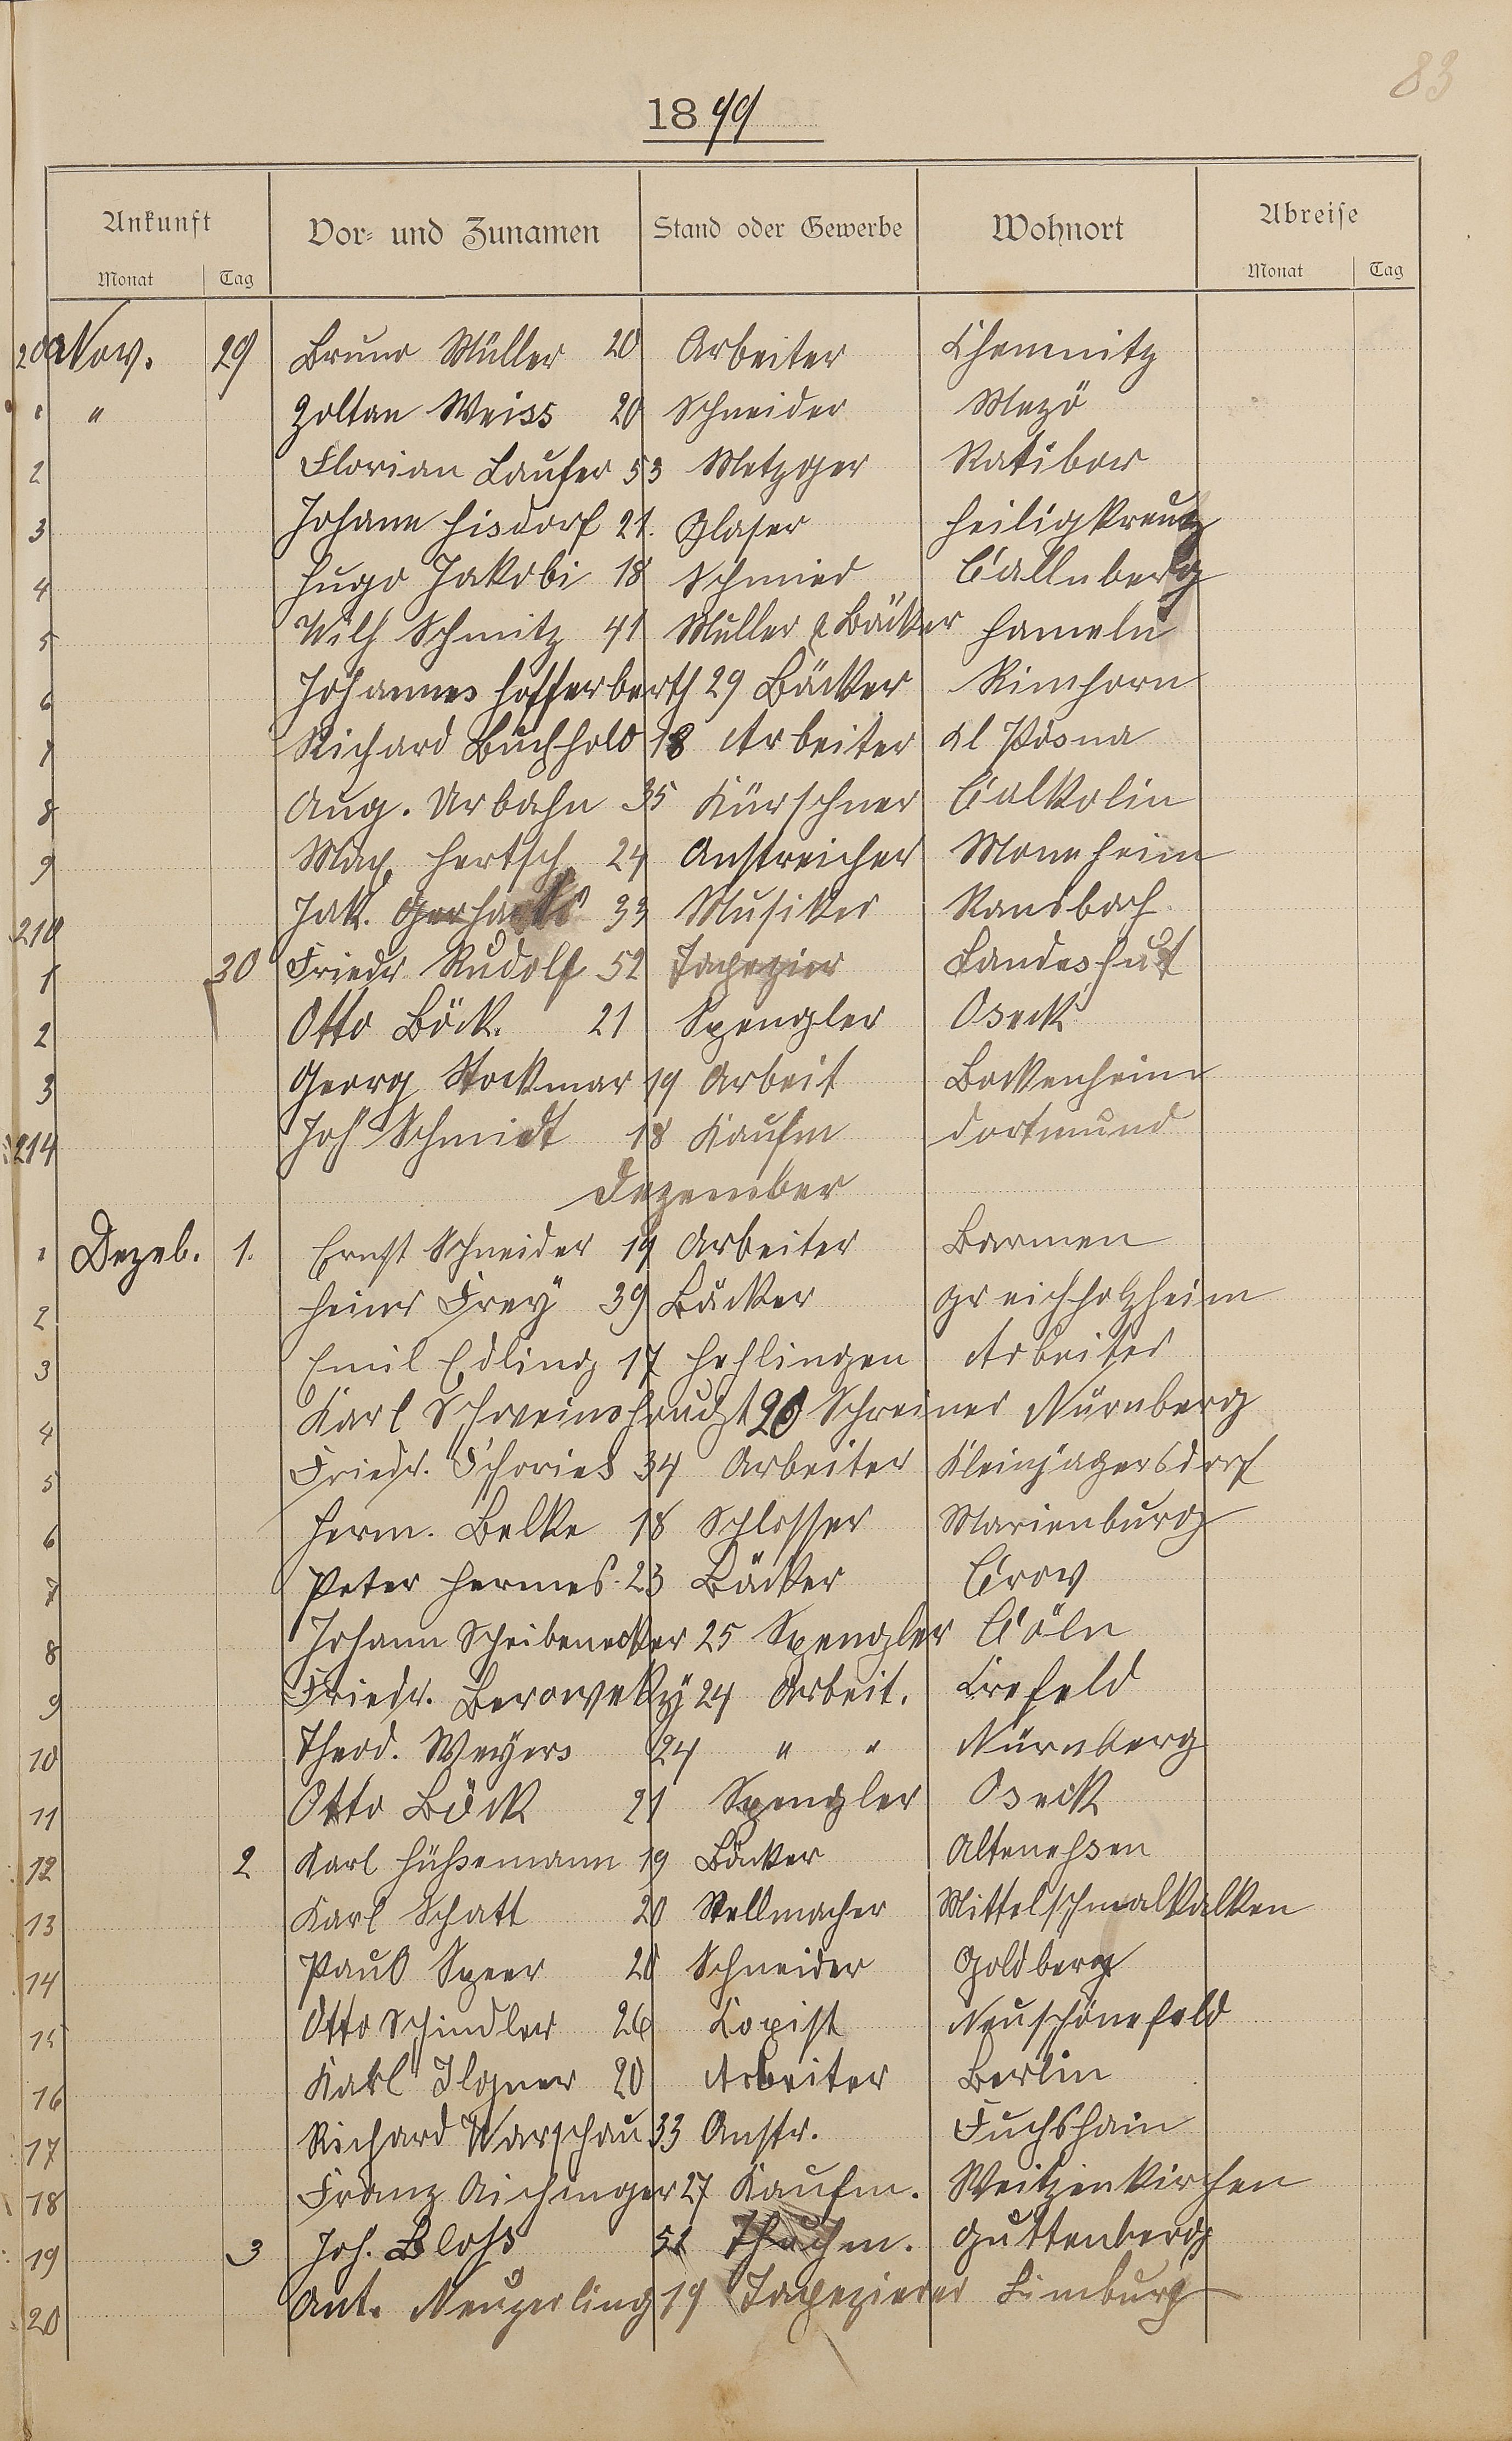 83
1899
Ankunft Vor- und Zunamen Stand oder Gewerbe Wohnort Abreise
Monat Tag Monat Tag
200 Nov. 29 Bruno Müller 20 Arbeiter Chemnitz
1 " Zoltan Weiss 20 Schneider Mezö
2 Florian Laufer 53 Metzger Ratibor
3 Johann Hisdorf 21. Glaser Heiligkreutz
4 Hugo Jakobi 18 Schmied Callnberg
5 Wilh Schmitz 41 Müller & Bäcker Hameln
6 Johannes Hofferberth 29 Bäcker Rimhorn
7 Richard Buchhold 18 Arbeiter Kl Pösna
8 Aug. Urbahn 35 Kürschner
9 Max Hertsch 24 Anstreicher Monnheim
210 Jak. 33 Musiker Ransbach
1 30 Friedr Rudolf 52 Tapezier Landeshut
2 Otto Böck. 21 Spengler Oseck
3 Georg Stockmar 19 Arbeit Bockenheim
214 Joh Schmidt 18 Kaufm Dortmund
Dezember
1 Dezeb. 1. Ernst Schneider 19 Arbeiter Barmen
2 Heinr Frey 39 Bäcker Gr eichholzheim
3 Emil Edling 17 Hehlingen Arbeiter
4 Karl 20 Schreiner Nürnberg
5 Friedr. Schories 34 Arbeiter Kleinjägersdorf
6 Herm. Belke 18 Schlosser Marienburg
7 Peter Hermes 23 Bäcker Cröv
8 Johann Scheibenecker 25 Spengler Cöln
9 Friedr. Berowsky 24 Arbeit. Crefeld
10 Theod. Weyers 24 " " Nürnberg
11 Otto Böck 21 Spengler Oseck
12 2 Karl Hüßemann 19 Bäcker Altenessen
13 Karl Schatt 20 Stellmacher Mittelschmalkalken
14 Paul Speer 28 Schneider Goldberg
15 Otto Schindler 26 Kopist Neuschönefeld
16 Karl Ilgner 20 Arbeiter Berlin
17 Richard Warschau 33 Anstr. Fuchshain
18 Franz Aichinger 27 Kaufm. Weitzenkirchen
19 3 Joh. Bloß 51 Guttenberg
20 Ant. Neuzerling 19 Tapezierer Limburg